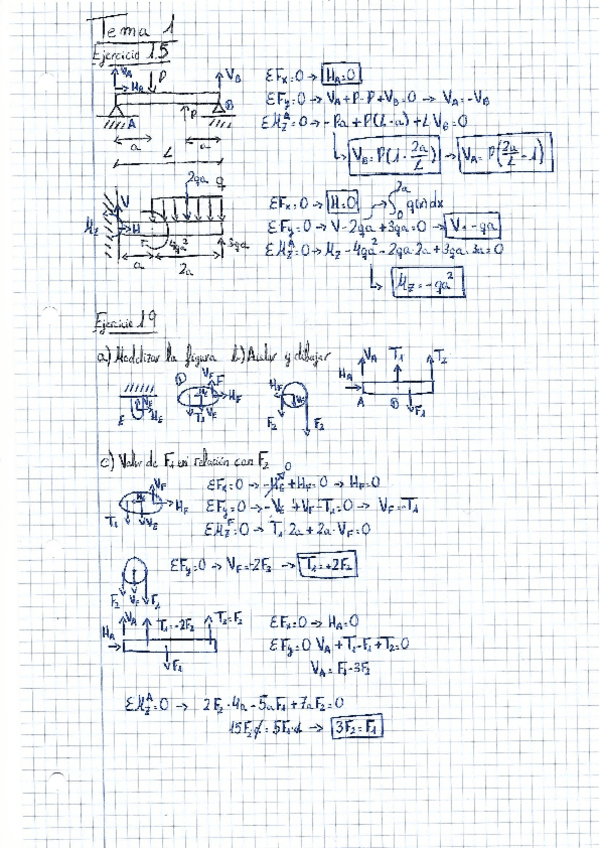 Tema 1
Ejercicio 1.5
VA P VB
HA
A P B
a a
L
ΣFx=0 → HA=0
ΣFy=0 → VA+P-P+VB=0 → VA=-VB
ΣMzA=0 → -Pa+P(L-a)+L VB=0
VB=P(1-2a/L) → VA=P(2a/L-1)
V 2qa q
Mz H 4qa² 3qa
a 2a
ΣFx=0 → H=0 ∫₀²ᵃ q(x)dx
ΣFy=0 → V-2qa+3qa=0 → V=-qa
ΣMzA=0 → Mz-4qa²-2qa·2a+3qa·3a=0
Mz=-qa²
Ejercicio 1.9
a) Modelizar la figura b) Aislar y dibujar
VA T1 T2
HA
A B F1
F2 F1
c) Valor de F1 en relación con F2
ΣFx=0 → -HE+HF=0 → HF=0
ΣFy=0 → -VE+VF-T1=0 → VF=T1
ΣMzF=0 → T1·2a+2a·VF=0
VF
HF
T1 VE
ΣFy=0 → VF=-2F2 → T2=+2F2
F2 VF F2
VA T1=-2F2 T2=F2
HA
F1
ΣFx=0 → HA=0
ΣFy=0 VA+T1-F1+T2=0
VA=F1-3F2
ΣMzA=0 → 2F2·4a-5aF1+7aF2=0
15F2a=5F1a → 3F2=F1